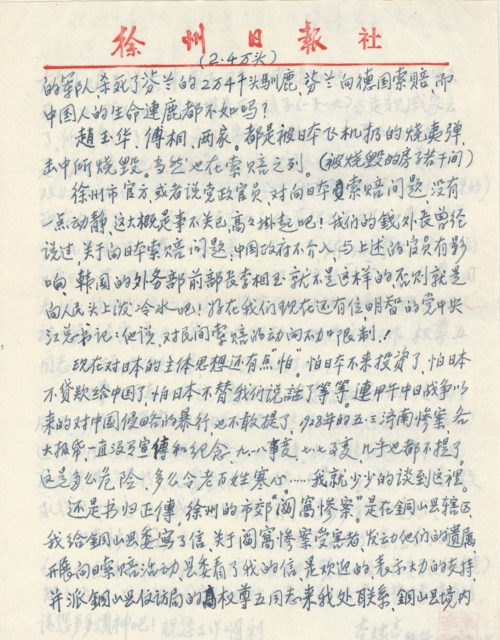 徐州日報社
(2.4万头)
的軍队,杀死了芬兰的2万4千头馴鹿,芬兰向德国索赔,而
中国人的生命連鹿都不如吗?
趙玉华、傅相、两家。都是被日本飞机扔的烧夷弹,
击中所烧毁。当然也在索赔之列。(被烧毁的房子若干间)
徐州市官方,或者说党政官员,对向日本索赔问题,没有
一点动静,这大概是事不关己高高掛起吧!我们的钱外长曾经
说过,关于向日本索赔问题,中国政府不介入,与上述的官员有影
响,韩国的外务部前部长李相玉就不是这样的,否则就是
向人民头上泼冷水吧!好在我们现在还有位明智的党中央
江总书记:他说,对民間索赔活动向不加限制!
现在对日本的主体思想还有点"怕。怕日本不来投資了,怕日本
不贷款给中国了,怕日本不替我们说話了等等。連甲午中日战争以
来的对中国侵略的暴行也不敢提了,1928年的五·三濟南惨案,各
大报帋,一直没有宣傳和纪念。九一八事变,七七事变,几乎也都不提了。
这是多么危险,多么令老百姓寒心……我就少少的谈到这裡。
还是书归正傳,徐州的市郊"閻窩惨案"。是在銅山县辖区,
我给銅山县委寫了信,关于閻窩惨案受害者,发动他们的遗属
开展向日索赔活动,县委看了我的信,是欢迎的,表示大力的支持,
并派銅山县信访局的权尊五同志来我处联系,銅山县境内